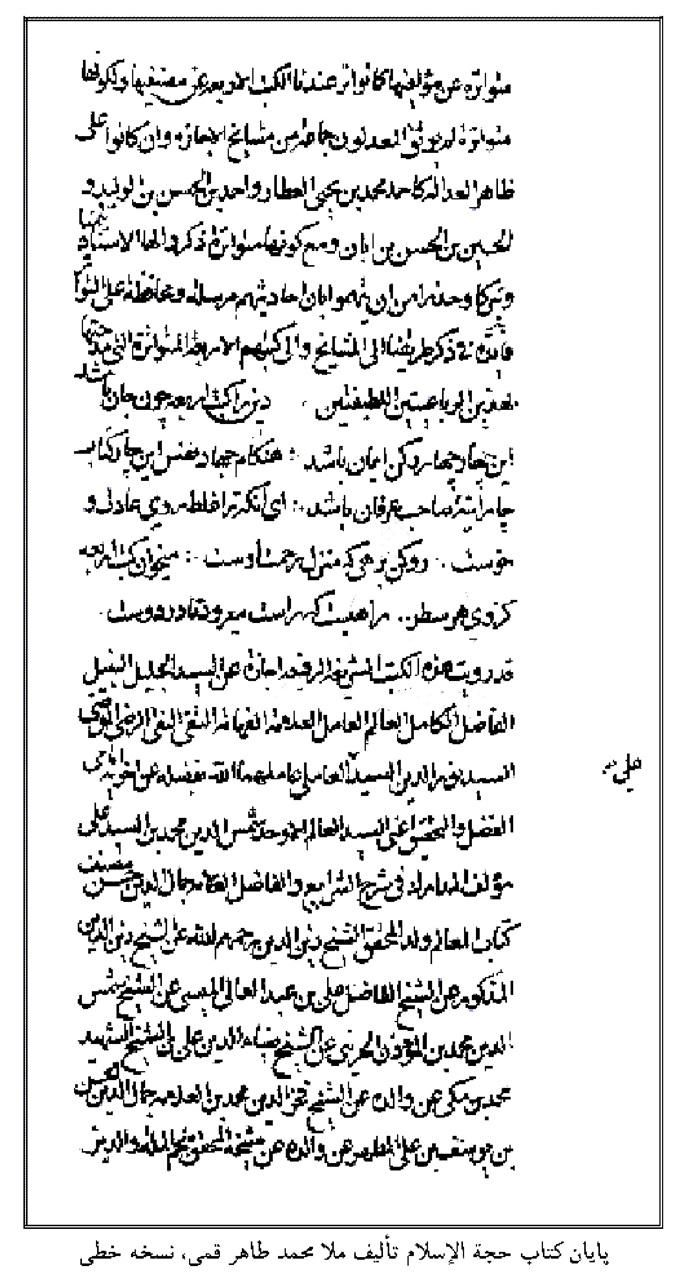 متواترة عن مؤلفيها كما تواتر عندنا الكتب الاربعة عن مصنفيها ولكونها
متواترة لم يوثق المعدلون جماعة من مشايخ الاجازة وان كانوا على
ظاهر العدالة كاحمد بن محمد بن يحيى العطار واحمد بن محمد بن الحسن بن الوليد و
الحسين بن الحسن بن ابان ومع كونها متواترة ذكروا لها الاسناد تيمنا
وتبركا وحذرا من ان يتهموا بان احاديثهم مرسلة ومحافظة على
في ذكر طريقنا الى المشايخ والى كتبهم الاربعة المتواترة التي مدحتها
بهذين الرباعيتين اللطيفتين دين را كتب اربعه چون جان باشد
اين چهار چهار ركن ايمان باشد هنكام جهاد نفس اين چار كتاب
چار آينه صاحب عرفان باشد اى آنكه ترا
خوست رو كن برهى كه منزل رحمت اوست ميخوان كتب اربعه
كز وى هر سطر راهيست كه راست ميرود تا در دوست
قد رويت هذه الكتب الشريفة اجازة عن السيد الجليل النبيل
الفاضل الكامل العالم العامل العلامة الفهامة التقي النقي الرضي
السيد نور الدين بن السيد العاملي عاملهما الله بفضله عن اخويه
الفضل والتحقيق اعني السيد العالم الاوحد شمس الدين محمد بن السيد على
مؤلف المدارك في شرح الشرايع والفاضل العلامة جمال الدين حسن مصنف
كتاب المعالم ولد المحقق الشيخ زين الدين رحمهم الله عن الشيخ زين الدين
المذكور عن الشيخ الفاضل على بن عبد العالي الميسى عن الشيخ شمس
الدين محمد بن المؤذن الجزيني عن الشيخ ضياء الدين على بن الشيخ الشهيد
محمد بن مكى عن والده عن الشيخ فخر الدين محمد بن العلامة جمال الدين الحسن
بن يوسف بن على المطهر عن والده عن شيخه المحقق نجم الملة والدين
علي
پایان کتاب حجة الإسلام تألیف ملا محمد طاهر قمی، نسخه خطی